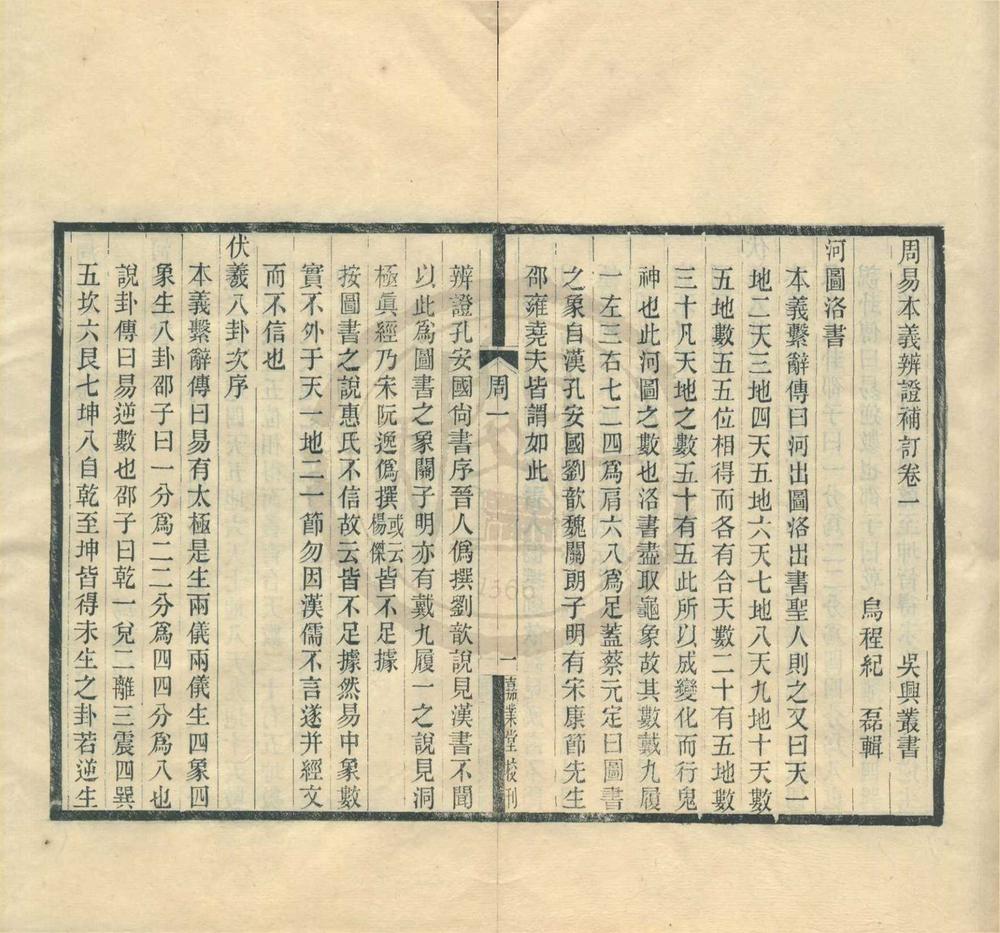 周易本義辨證補訂卷一　吳興叢書
烏程紀　磊輯
河圖洛書
本義繫辭傳曰河出圖洛出書聖人則之又曰天一
地二天三地四天五地六天七地八天九地十天數
五地數五五位相得而各有合天數二十有五地數
三十凡天地之數五十有五此所以成變化而行鬼
神也此河圖之數也洛書盡取龜象故其數戴九履
一左三右七二四爲肩六八爲足蓋蔡元定曰圖書
之象自漢孔安國劉歆魏關朗子明有宋康節先生
邵雍堯夫皆謂如此
周一
一
嘉業堂校刊
辨證孔安國尙書序晉人僞撰劉歆說見漢書不聞
以此爲圖書之象關子明亦有戴九履一之說見洞
極眞經乃宋阮逸僞撰或云楊傑皆不足據
按圖書之說惠氏不信故云皆不足據然易中象數
實不外于天一地二一節勿因漢儒不言遂并經文
而不信也
伏羲八卦次序
本義繫辭傳曰易有太極是生兩儀兩儀生四象四
象生八卦邵子曰一分爲二二分爲四四分爲八也
說卦傳曰易逆數也邵子曰乾一兌二離三震四巽
五坎六艮七坤八自乾至坤皆得未生之卦若逆生